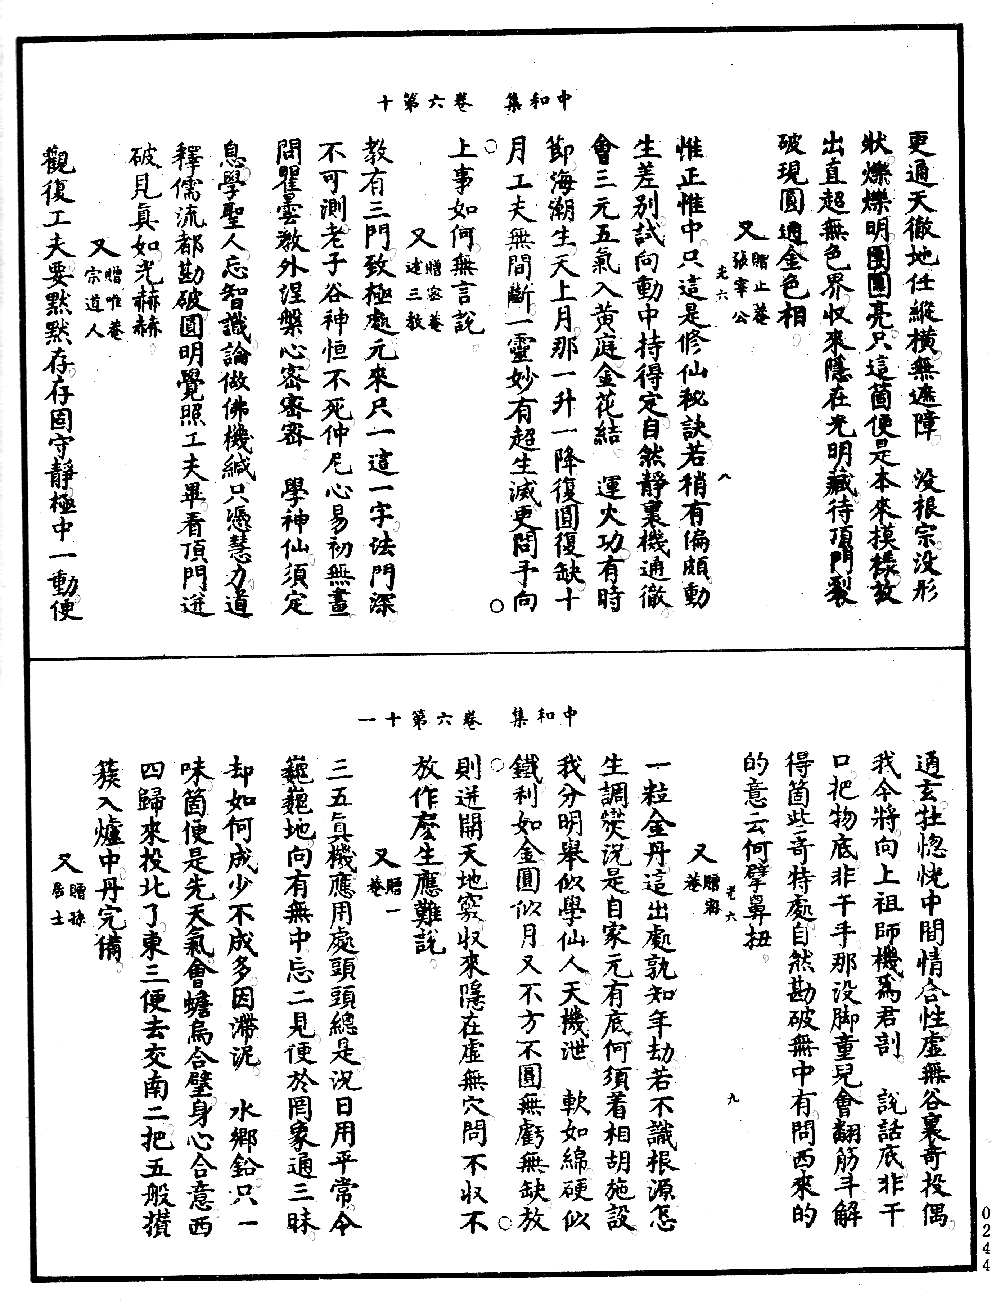 中和集　卷六第十
更通天徹地任縱橫無遮障　沒根宗沒形
狀爍爍明團團亮只這箇便是本來模樣放
出直超無色界収來隱在光明藏待頂門裂
破現圓通金色相
又贈止菴張宰公
惟正惟中只這是修仙秘訣若稍有偏頗動
生差別試向動中持得定自然靜裏機通徹
會三元五氣入黄庭金花結　運火功有時
節海潮生天上月那一升一降復圓復缺十
月工夫無間斷一靈妙有超生滅更問予向
上事如何無言說
又贈密菴述三教
教有三門致極處元來只一這一字法門深
不可測老子谷神恒不死仲尼心易初無畫
問瞿曇教外涅槃心密密密　學神仙須定
息學聖人忘智識論做佛機緘只憑慧力道
釋儒流都勘破圓明覺照工夫畢看頂門迸
破見真如光赫赫
又贈唯菴宗道人
觀復工夫要默默存存固守靜極中一動便
光六
八
中和集　卷六第十一
通玄牡惚恍中間情合性虛無谷裏奇投偶
我今將向上祖師機爲君剖　說話底非干
口把物底非干手那沒脚童兒會翻筋斗解
得箇些奇特處自然勘破無中有問西來的
的意云何擘鼻扭
又贈密菴
一粒金丹這出處孰知年劫若不識根源怎
生調燮況是自家元有底何須着相胡施設
我分明舉似學仙人天機泄　軟如綿硬似
鐵利如金圓似月又不方不圓無虧無缺放
則迸開天地竅収來隱在虛無穴問不収不
放作麽生應難說
又贈一菴
三五真機應用處頭頭總是況日用平常令
巍巍地向有無中忘二見便於罔象通三昧
却如何成少不成多因滯泥　水鄉鉛只一
味箇便是先天氣會蟾烏合璧身心合意西
四歸來投北了東三便去交南二把五般攢
簇入爐中丹完備
又贈孫居士
光六
九
0244